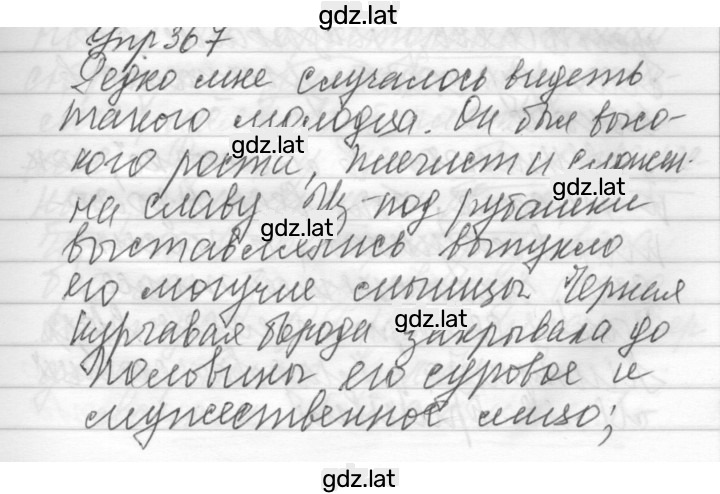 gdz.lat
Упр 367
Редко мне случалось видеть
такого молодца. Он был высо-
кого рости, плечист и сложен
gdz.lat
gdz.lat
на славу Из-под рубашки
gdz.lat
выставлялись выпукло
его могучие мышцы. Черная
курчавая борода закрывала до
gdz.lat
половины его суровое и
мужественное лицо;
gdz.lat